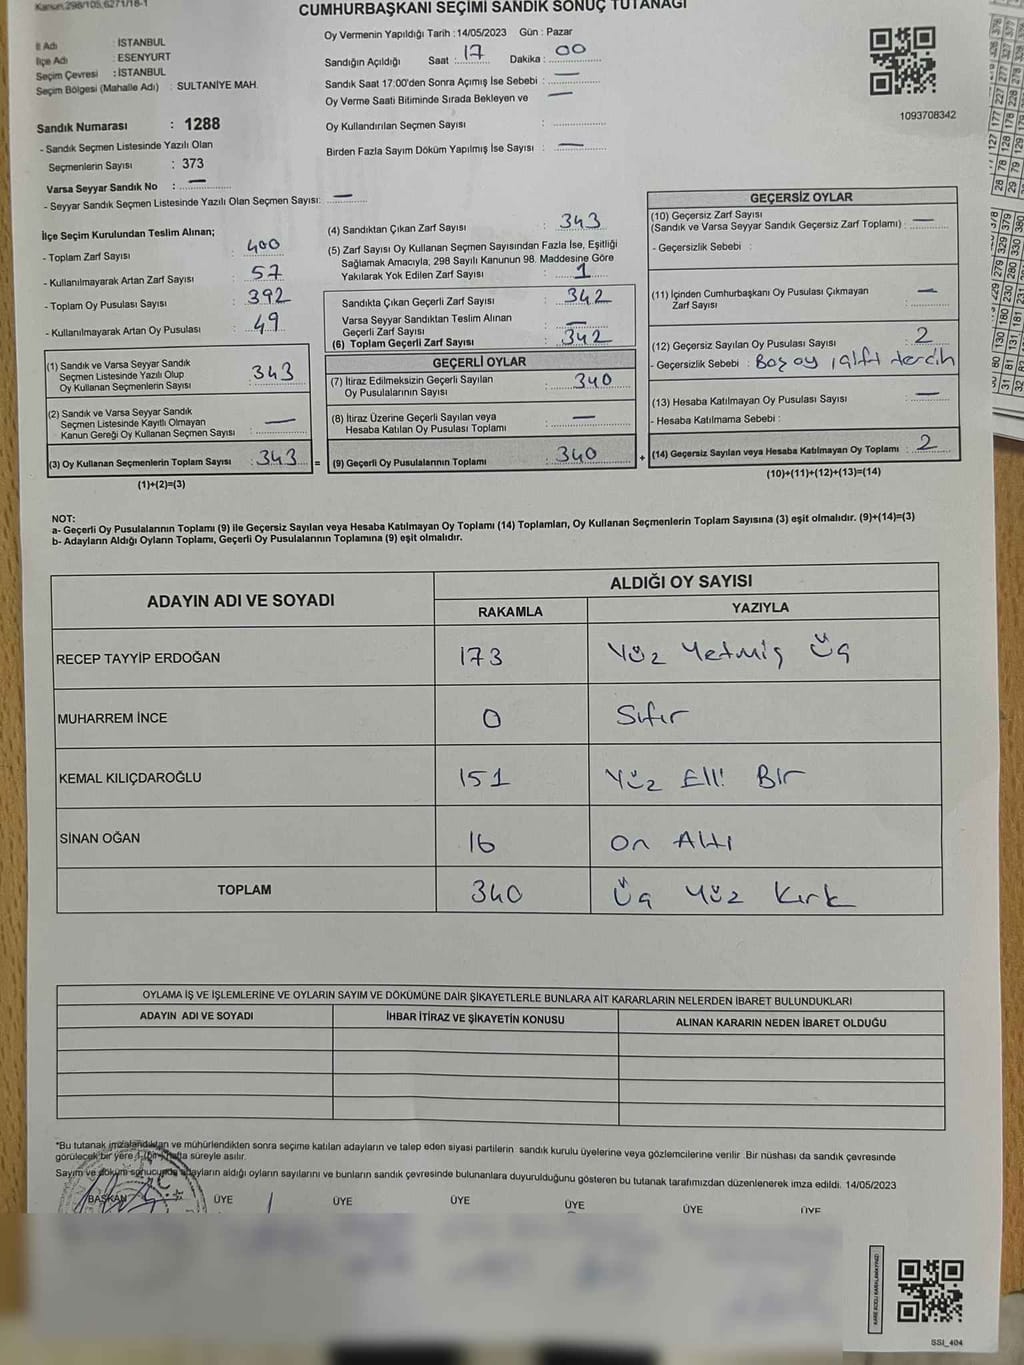 Kanun.298/105,6271/18-1
CUMHURBAŞKANI SEÇİMİ SANDIK SONUÇ TUTANAĞI
İl Adı : İSTANBUL
İlçe Adı : ESENYURT
Seçim Çevresi : İSTANBUL
Seçim Bölgesi (Mahalle Adı) : SULTANİYE MAH.
Sandık Numarası : 1288
- Sandık Seçmen Listesinde Yazılı Olan
Seçmenlerin Sayısı : 373
Varsa Seyyar Sandık No : —
- Seyyar Sandık Seçmen Listesinde Yazılı Olan Seçmen Sayısı: —
Oy Vermenin Yapıldığı Tarih : 14/05/2023 Gün : Pazar
Sandığın Açıldığı Saat : 17 Dakika : 00
Sandık Saat 17:00'den Sonra Açımış İse Sebebi : —
Oy Verme Saati Bitiminde Sırada Bekleyen ve —
Oy Kullandırılan Seçmen Sayısı :
Birden Fazla Sayım Döküm Yapılmış İse Sayısı : —
1093708342
İlçe Seçim Kurulundan Teslim Alınan;
- Toplam Zarf Sayısı : 400
- Kullanılmayarak Artan Zarf Sayısı : 57
- Toplam Oy Pusulası Sayısı : 392
- Kullanılmayarak Artan Oy Pusulası : 49
(1) Sandık ve Varsa Seyyar Sandık
Seçmen Listesinde Yazılı Olup
Oy Kullanan Seçmenlerin Sayısı : 343
(2) Sandık ve Varsa Seyyar Sandık
Seçmen Listesinde Kayıtlı Olmayan
Kanun Gereği Oy Kullanan Seçmen Sayısı : —
(3) Oy Kullanan Seçmenlerin Toplam Sayısı : 343 =
(1)+(2)=(3)
(4) Sandıktan Çıkan Zarf Sayısı : 343
(5) Zarf Sayısı Oy Kullanan Seçmen Sayısından Fazla İse, Eşitliği
Sağlamak Amacıyla, 298 Sayılı Kanunun 98. Maddesine Göre
Yakılarak Yok Edilen Zarf Sayısı : 1
Sandıkta Çıkan Geçerli Zarf Sayısı : 342
Varsa Seyyar Sandıktan Teslim Alınan
Geçerli Zarf Sayısı : —
(6) Toplam Geçerli Zarf Sayısı : 342
GEÇERLİ OYLAR
(7) İtiraz Edilmeksizin Geçerli Sayılan
Oy Pusulalarının Sayısı : 340
(8) İtiraz Üzerine Geçerli Sayılan veya
Hesaba Katılan Oy Pusulası Toplamı : —
(9) Geçerli Oy Pusulalarının Toplamı : 340 +
GEÇERSİZ OYLAR
(10) Geçersiz Zarf Sayısı
(Sandık ve Varsa Seyyar Sandık Geçersiz Zarf Toplamı) : —
- Geçersizlik Sebebi :
(11) İçinden Cumhurbaşkanı Oy Pusulası Çıkmayan
Zarf Sayısı : —
(12) Geçersiz Sayılan Oy Pusulası Sayısı : 2
- Geçersizlik Sebebi : Boş oy, çift tercih
(13) Hesaba Katılmayan Oy Pusulası Sayısı : —
- Hesaba Katılmama Sebebi :
(14) Geçersiz Sayılan veya Hesaba Katılmayan Oy Toplamı : 2
(10)+(11)+(12)+(13)=(14)
NOT:
a- Geçerli Oy Pusulalarının Toplamı (9) ile Geçersiz Sayılan veya Hesaba Katılmayan Oy Toplamı (14) Toplamları, Oy Kullanan Seçmenlerin Toplam Sayısına (3) eşit olmalıdır. (9)+(14)=(3)
b- Adayların Aldığı Oyların Toplamı, Geçerli Oy Pusulalarının Toplamına (9) eşit olmalıdır.
ADAYIN ADI VE SOYADI
ALDIĞI OY SAYISI
RAKAMLA YAZIYLA
RECEP TAYYİP ERDOĞAN 173 Yüz Yetmiş Üç
MUHARREM İNCE 0 Sıfır
KEMAL KILIÇDAROĞLU 151 Yüz Elli Bir
SİNAN OĞAN 16 On Altı
TOPLAM 340 Üç Yüz Kırk
OYLAMA İŞ VE İŞLEMLERİNE VE OYLARIN SAYIM VE DÖKÜMÜNE DAİR ŞİKAYETLERLE BUNLARA AİT KARARLARIN NELERDEN İBARET BULUNDUKLARI
ADAYIN ADI VE SOYADI İHBAR İTİRAZ VE ŞİKAYETİN KONUSU ALINAN KARARIN NEDEN İBARET OLDUĞU
*Bu tutanak imzalandıktan ve mühürlendikten sonra seçime katılan adayların ve talep eden siyasi partilerin sandık kurulu üyelerine veya gözlemcilerine verilir .Bir nüshası da sandık çevresinde
görülecek bir yere 1 (bir) hafta süreyle asılır.
Sayım ve döküm sonucunda adayların aldığı oyların sayılarını ve bunların sandık çevresinde bulunanlara duyurulduğunu gösteren bu tutanak tarafımızdan düzenlenerek imza edildi. 14/05/2023
BAŞKAN ÜYE ÜYE ÜYE ÜYE ÜYE ÜYE
SSI_404